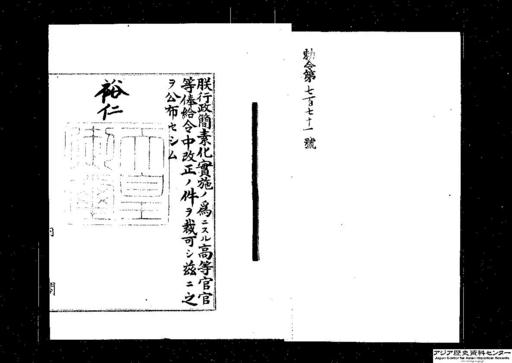 勅令第七百七十一號
朕行政簡素化實施ノ爲ニスル高等官官
等俸給令中改正ノ件ヲ裁可シ茲ニ之
ヲ公布セシム
裕仁
天皇
御璽
アジア歴史資料センター
Japan Center for Asian Historical Records